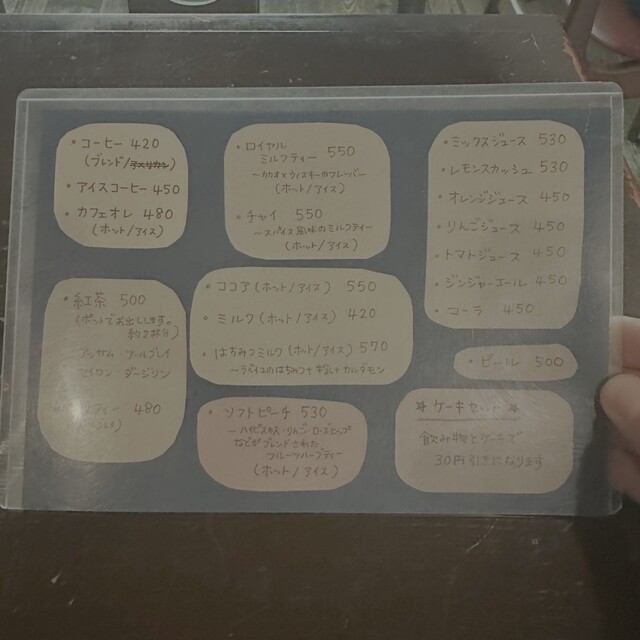 ・コーヒー 420
(ブレンド/アメリカン)
・アイスコーヒー 450
・カフェオレ 480
(ホット/アイス)
・紅茶 500
(ポットでお出しします。
約2杯分)
アッサム アールグレイ
セイロン ダージリン
ティー 480
・ロイヤル
ミルクティー 550
～カカオとウィスキーのフレーバー
(ホット/アイス)
・チャイ 550
～スパイス風味のミルクティー
(ホット/アイス)
・ココア(ホット/アイス) 550
・ミルク(ホット/アイス) 420
・はちみつミルク(ホット/アイス) 570
のはちみつ カルダモン
・ソフトピーチ 530
～ハイビスカス・りんご・ローズヒップ
などがブレンドされた
フルーツハーブティー
(ホット/アイス)
・ミックスジュース 530
・レモンスカッシュ 530
・オレンジジュース 450
・りんごジュース 450
・トマトジュース 450
・ジンジャーエール 450
・コーラ 450
・ビール 500
＊ケーキセット＊
飲み物とケーキで
30円引きになります